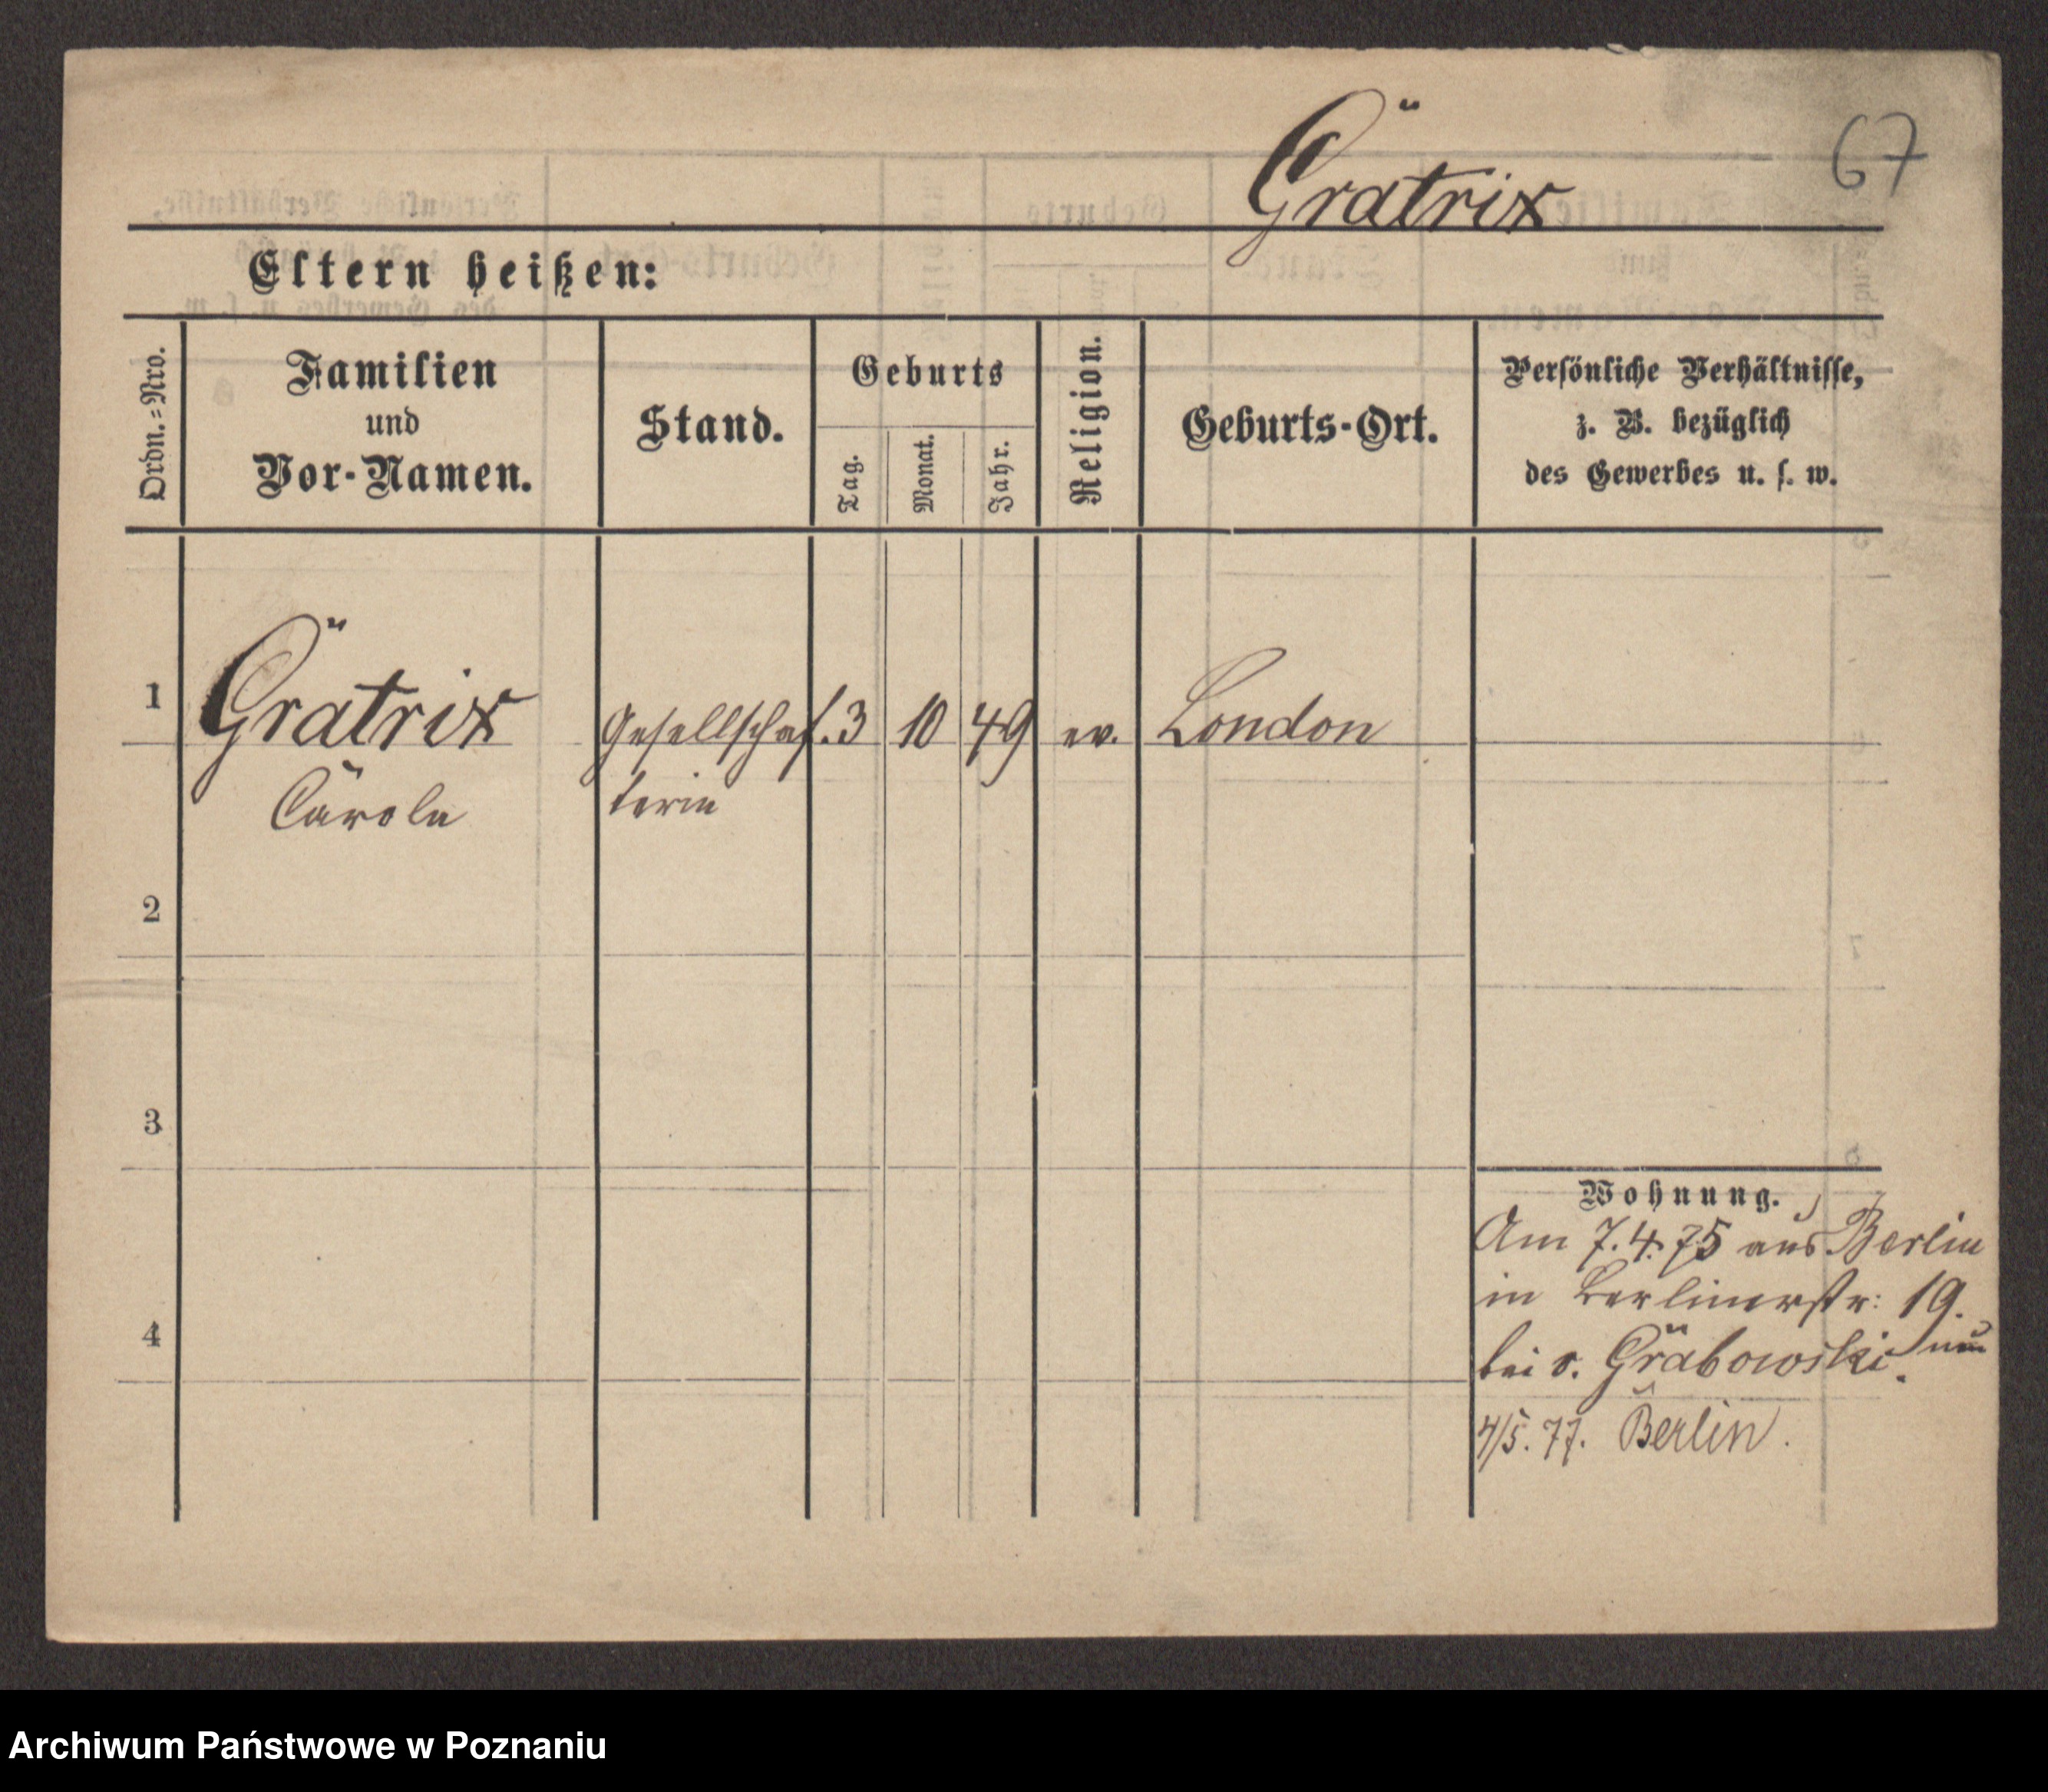 67
Grätrix
Eltern heißen:
Ordn.=Nro.
Familien
und
Vor-Namen.
Stand.
Geburts
Tag.
Monat.
Jahr.
Religion.
Geburts-Ort.
Persönliche Verhältnisse,
z. B. bezüglich
des Gewerbes u. s. w.
1 Grätrix Gesellschaf. 3 10 49 ev. London
Carola terin
2
3
4
Wohnung.
Am 7.4.75 aus Berlin
in Berlinerstr: 19.
bei v. Grabowski
4/5. 77. Berlin.
Archiwum Państwowe w Poznaniu